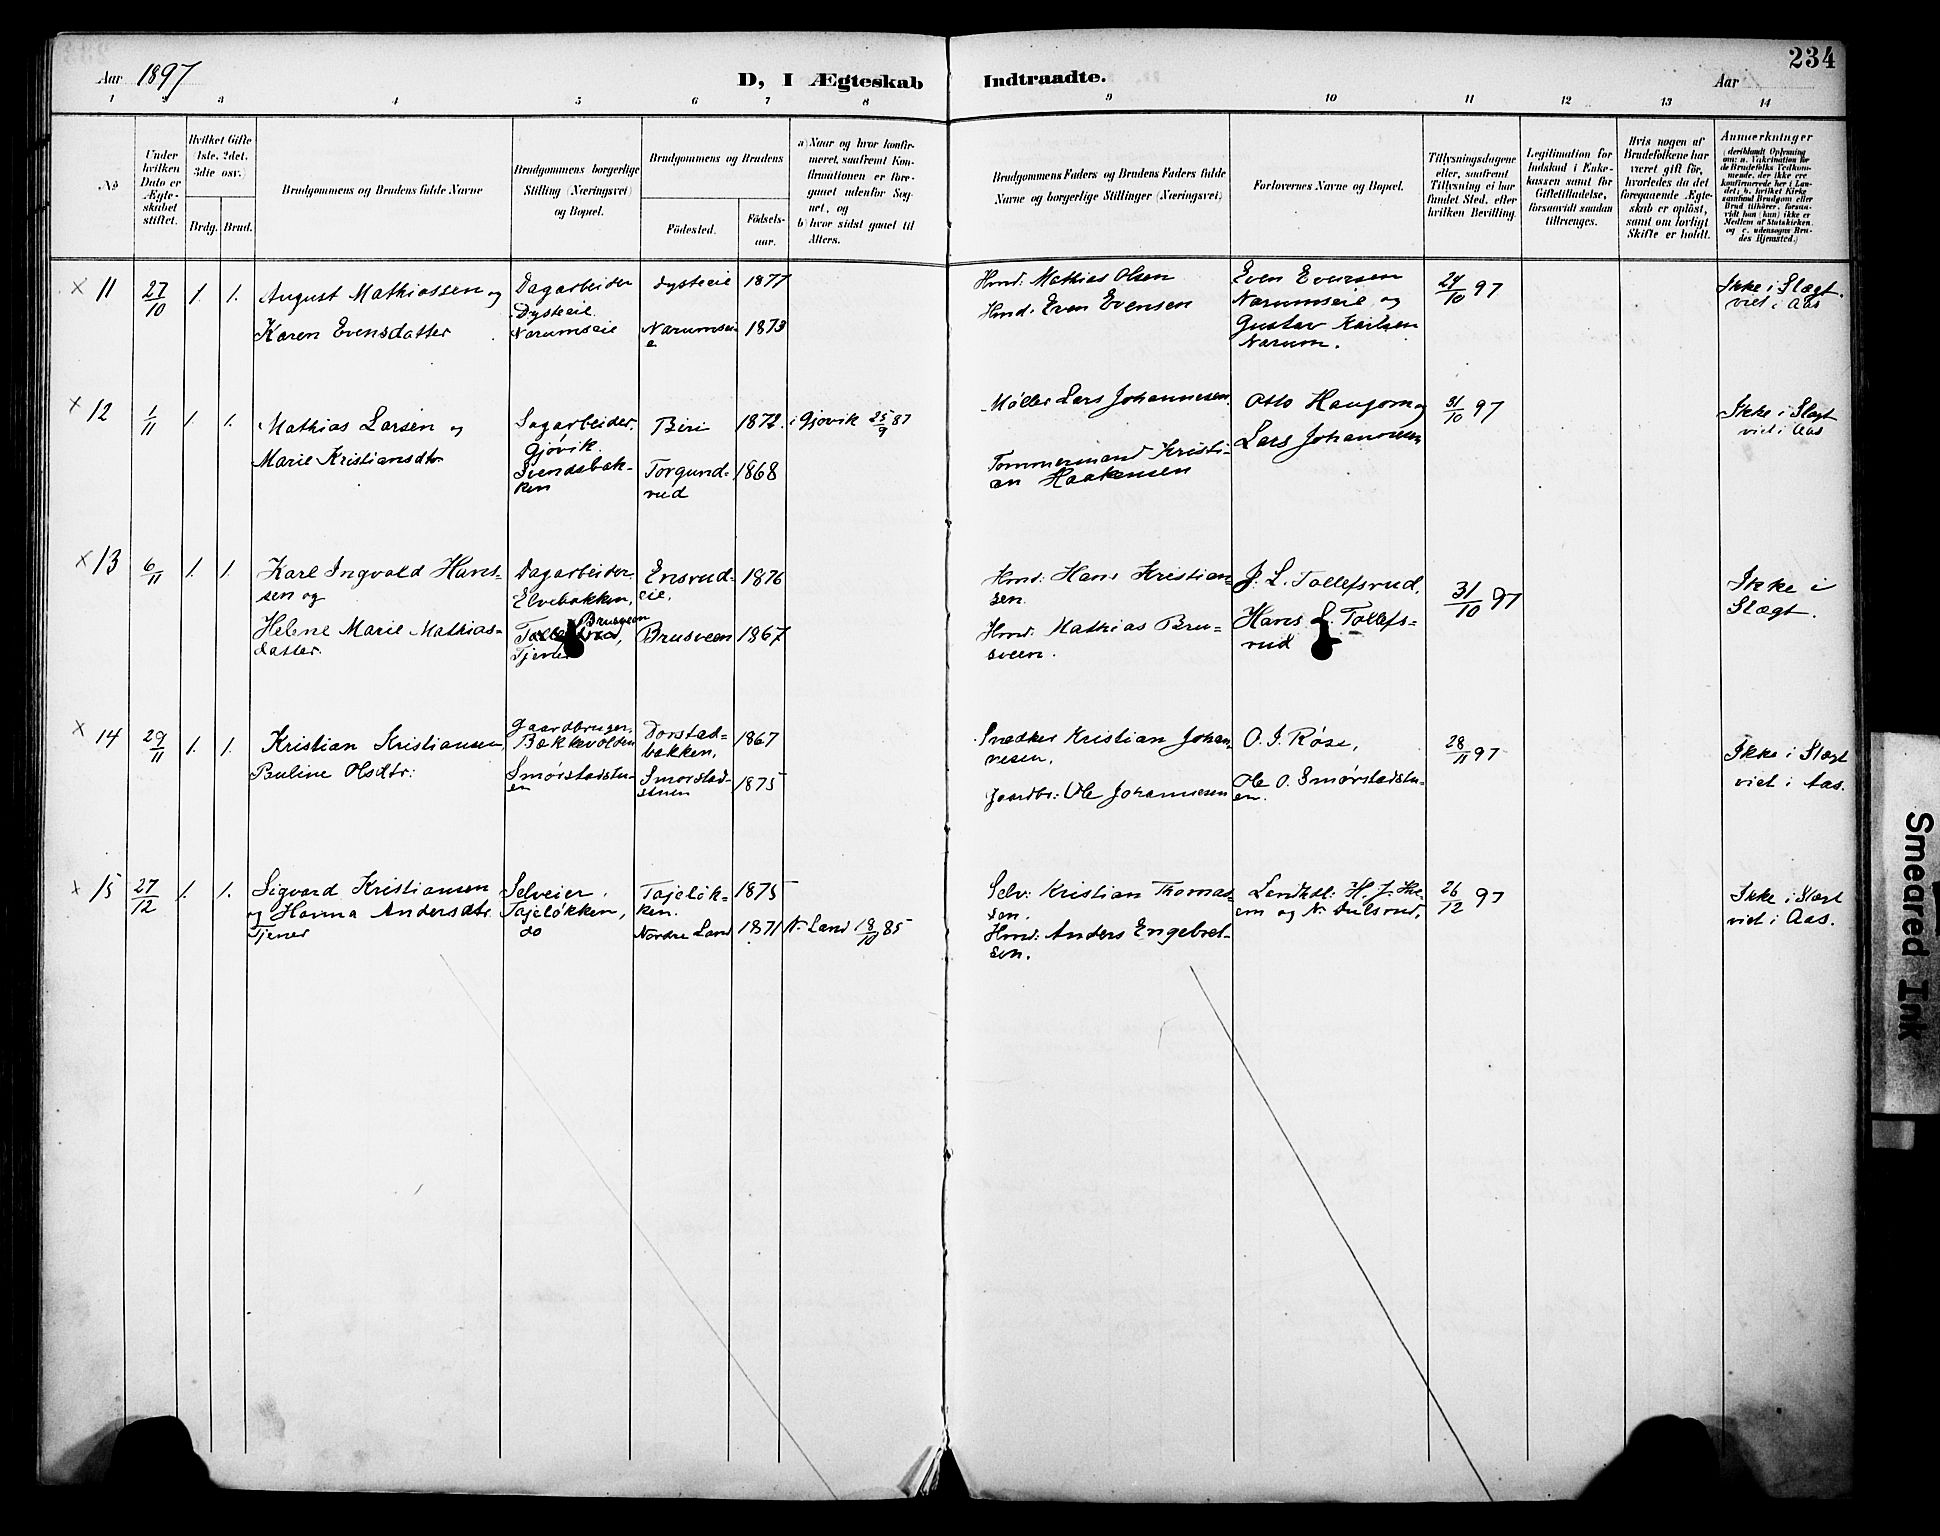 234
Aar 1897
D, I Ægteskab Indtraadte.
Aar
1 2 3 4 5 6 7 8 9 10 11 12 13 14
No
Under hvilken Dato er Ægteskabet stiftet.
Hvilket Gifte 1ste, 2det, 3die osv.)
Brdg. Brud.
Brudgommens og Brudens fulde Navne
Brudgommens borgerlige Stilling (Næringsvei) og Bopæl.
Brudgommens og Brudens
Fødested.
Fødselsaar.
a) Naar og hvor konfirmeret, saafremt Konfirmationen er foregaaet udenfor Sognet, og
b) hvor sidst gaaet til Alters.
Brudgommens Faders og Brudens Faders fulde Navne og borgerlige Stillinger (Næringsvei)
Forlovernes Navne og Bopæl.
Tillysningsdagene eller, saafremt Tillysning ei har fundet Sted, efter hvilken Bevilling.
Legitimation for Indskud i Enkekassen samt for Giftetilladelse, forsaavidt saadan tiltrænges.
Hvis nogen af Brudefolkene har været gift før, hvorledes da det foregaaende Ægteskab er opløst, samt om lovligt Skifte er holdt.
Anmerkninger
(deriblandt Oplysning om: a. Vakcination for de Brudefolks Vedkommende, der ikke ere konfirmerede her i Landet; b. hvilket Kirkesamfund Brudgom eller Brud tilhører, forsaavidt han (hun) ikke er Medlem af Statskirken, og c. udensogns Brudes Hjemsted.)
x 11 27/10 1. 1. August Mathiassen og
Karen Evensdatter
Dagarbeider
Dysteeie.
Narumseie
Dysteeie 1877
Narumseie 1873
Hmd: Mathias Olsen
Hmd. Even Evensen
Even Evensen
Narumseie og
Gustav Karlsen
Narum.
24/10 97
Ikke i Slægt.
viet i Aas
x 12 1/11 1. 1. Mathias Larsen og
Marie Kristiansdtr
Sagarbeider,
Gjøvik.
Svendsbakken
Biri 1872. i Gjøvik 25/9 87
Torgundrud 1868
Møller Lars Johannesen.
Tømmermand Kristian Haakensen
Otto Haugom og
Lars Johannesen
31/10 97
Ikke i Slægt
viet i Aas
x 13 6/11 1. 1. Karl Ingvald Hansen og
Helene Marie Mathiasdatter.
Dagarbeider
Elvebakken,
Brusveen
Tjener
Ensrudeie, 1876
Brusveen 1867
Hmd: Hans Kristiansen.
Hmd: Mathias Brusveen.
J. L. Tollefsrud,
Hans L. Tollefsrud
31/10 97
Ikke i
Slægt.
x 14 29/11 1. 1. Kristian Kristiansen,
Pauline Olsdtr:
Gaardbruger,
Bækkevolden
Smørstadstuen
Dorstadbakken, 1867
Smørstadstuen 1875
Snedker Kristian Johannesen,
Gaardbr: Ole Johannesen
O. J. Røse,
Ole O. Smørstadstuen.
28/11 97
Ikke i Slægt
viet i Aas.
x 15 27/12 1. 1. Sigvard Kristiansen
og Hanna Andersdtr.
Tjener
Selveier,
Tajeløkken,
do
Tajeløkken. 1875
Nordre Land 1871 N. Land 18/10 85
Selv: Kristian Thomassen.
Hmd: Anders Engebretsen.
Landhdl: H. J.
og N.
26/12 97
Ikke i Slægt
viet i Aas.
Smeared Ink